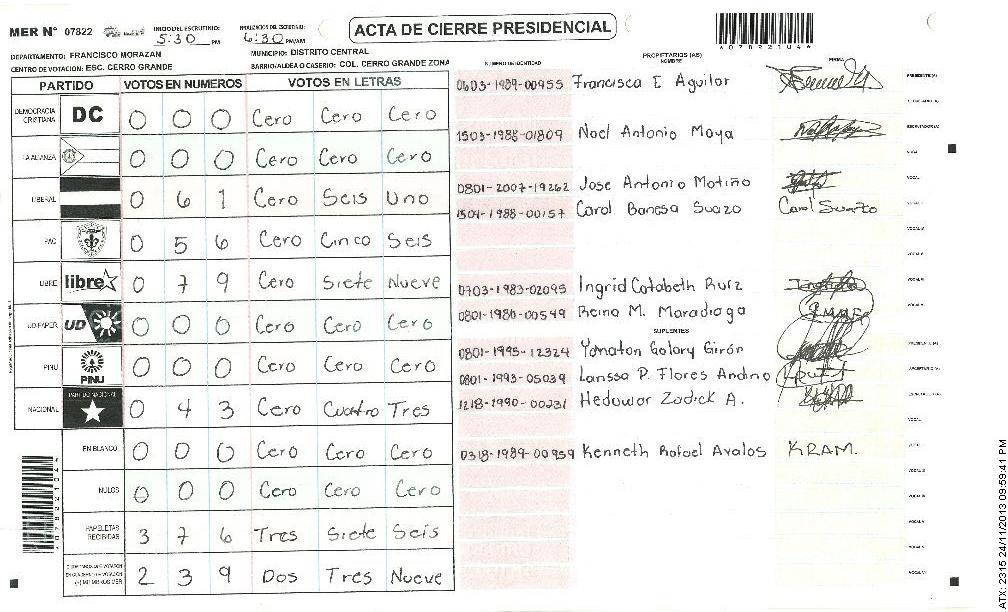 MER N° 07822
INICIO DEL ESCRUTINIO: 5:30 PM
FINALIZACION DEL ESCRUTINIO: 6:30 PM/AM
ACTA DE CIERRE PRESIDENCIAL
DEPARTAMENTO: FRANCISCO MORAZAN
MUNICIPIO: DISTRITO CENTRAL
CENTRO DE VOTACIÓN: ESC. CERRO GRANDE
BARRIO/ALDEA O CASERIO: COL. CERRO GRANDE ZONA
PARTIDO VOTOS EN NUMEROS VOTOS EN LETRAS
DEMOCRACIA CRISTIANA DC 0 0 0 Cero Cero Cero
LA ALIANZA 0 0 0 Cero Cero Cero
LIBERAL 0 6 1 Cero Seis Uno
PAC 0 5 6 Cero Cinco Seis
LIBRE libre 0 7 9 Cero Siete Nueve
UD-FAPER UD 0 0 0 Cero Cero Cero
PINU PINU 0 0 0 Cero Cero Cero
NACIONAL PARTIDO NACIONAL 0 4 3 Cero Cuatro Tres
EN BLANCO 0 0 0 Cero Cero Cero
NULOS 0 0 0 Cero Cero Cero
PAPELETAS RECIBIDAS 3 7 6 Tres Siete Seis
2 3 9 Dos Tres Nueve
NUMERO DE IDENTIDAD
PROPIETARIOS (AS)
NOMBRE
FIRMA
0603-1989-00955 Francisca E Aguilar PRESIDENTE(A)
SECRETARIO(A)
1503-1988-01809 Noel Antonio Moya ESCRUTADOR(A)
VOCAL
0801-2007-19262 Jose Antonio Motiño VOCAL
1504-1988-00157 Carol Banesa Suazo Carol Suazo
0703-1983-02095 Ingrid Cotabeth Ruiz
0801-1980-00549 Reina M. Maradiaga
SUPLENTES
0801-1995-12324 Yonatan Golary Girón
0801-1993-05039 Larissa P. Flores Andino
1218-1990-00231 Heduwar Zadick A.
0318-1989-00959 Kenneth Rafael Avalos KRAM.
ATX: 2315 24/11/2013 09:59:41 PM